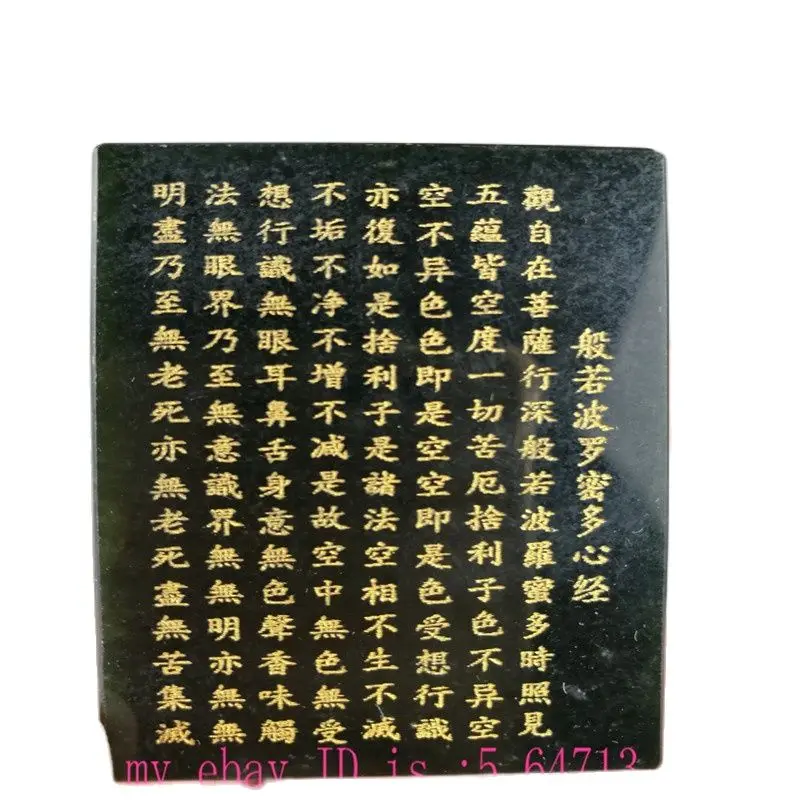 般若波罗密多心经
觀自在菩薩行深般若波羅蜜多時照見
五蘊皆空度一切苦厄捨利子色不异空
空不异色色即是空空即是色受想行識
亦復如是捨利子是諸法空相不生不滅
不垢不净不增不减是故空中無色無受
想行識無眼耳鼻舌身意無色聲香味觸
法無眼界乃至無意識界無無明亦無無
明盡乃至無老死亦無老死盡無苦集滅
my ebay ID is :5 64713